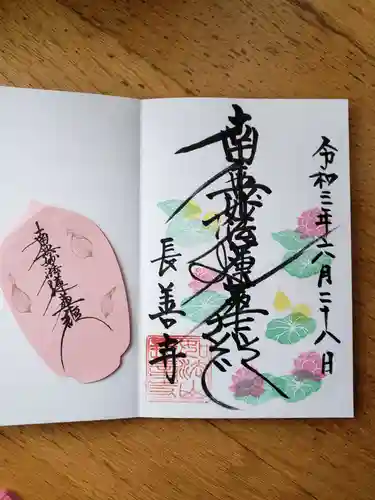 令和三年六月二十八日
南無妙法蓮華経
長善寺
南無妙法蓮華経